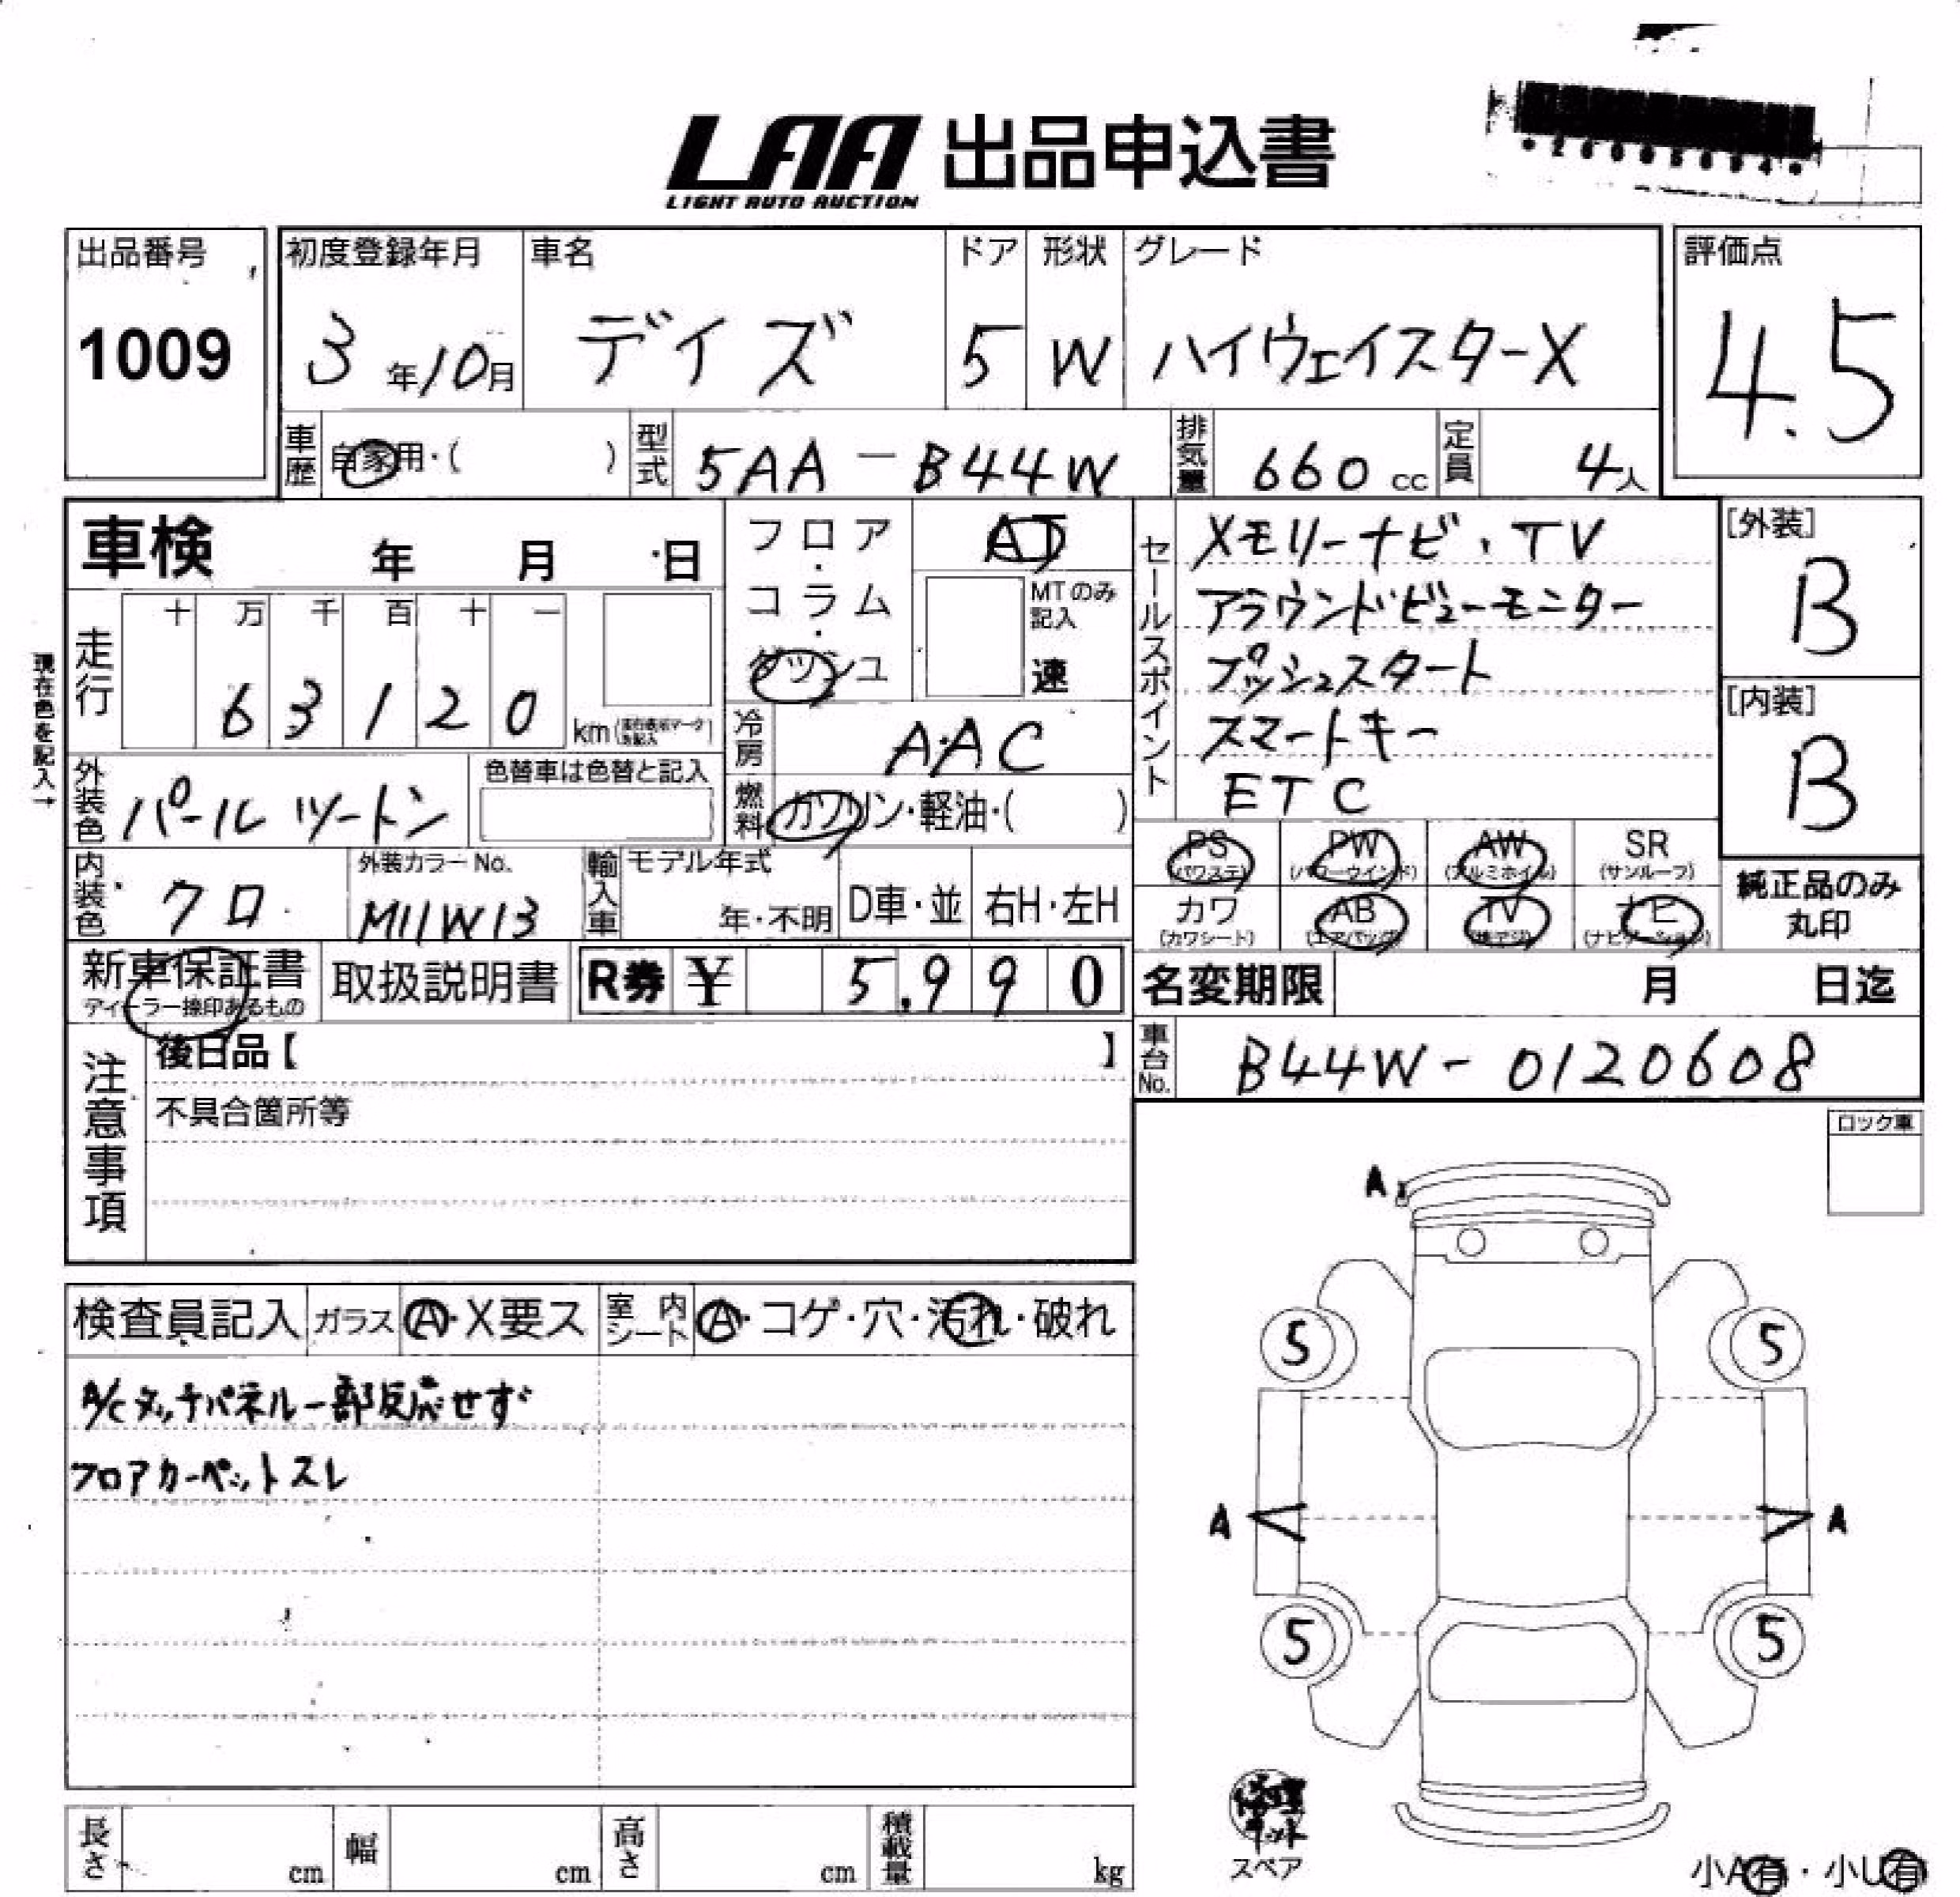 LAA 出品申込書
LIGHT AUTO AUCTION
出品番号
1009
初度登録年月
3年10月
車名
デイズ
ドア
5
形状
W
グレード
ハイウェイスターX
評価点
4.5
車歴
自家用・( )
型式
5AA-B44W
排気量
660cc
定員
4人
車検 年 月 日
フロア・コラム・ダッシュ
AT
MTのみ記入
速
走行
十 万 千 百 十 一
6 3 1 2 0 km
現在色を記入→
冷房
AAC
燃料
ガソリン・軽油・( )
セールスポイント
メモリーナビ・TV
アラウンドビューモニター
プッシュスタート
スマートキー
ETC
[外装]
B
[内装]
B
外装色
パールツートン
色替車は色替と記入
内装色
クロ
外装カラーNo.
M11W13
輸入車
モデル年式
年・不明
D車・並
右H・左H
PS (パワステ)
PW (パワーウインド)
AW (アルミホイル)
SR (サンルーフ)
カワ (カワシート)
AB (エアバッグ)
TV (地デジ)
ナビ (ナビゲーション)
純正品のみ丸印
新車保証書
ディーラー捺印あるもの
取扱説明書
R券 ¥ 5,990
名変期限 月 日迄
注意事項
後日品【 】
不具合箇所等
車台No.
B44W-0120608
ロック車
検査員記入
ガラス
A・X要ス
室内シート
A・コゲ・穴・汚れ・破れ
A/Cタッチパネル一部反応せず
フロアカーペットスレ
A
5 5
A A
5 5
修理キット
スペア
小A有・小U有
長さ cm
幅 cm
高さ cm
積載量 kg